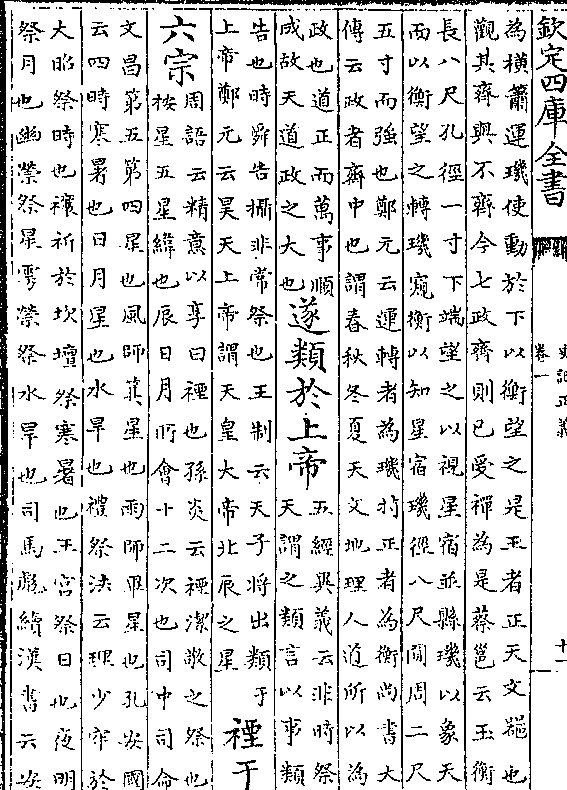 欽定四庫全書
史記正義
卷一
十一
為橫簫運璣使動於下以衡望之是王者正天文器也
觀其齊與不齊今七政齊則已受禪為是蔡邕云玉衡
長八尺孔徑一寸下端望之以視星宿並縣璣以象天
而以衡望之轉璣窺衡以知星宿璣徑八尺圓周二尺
五寸而強也鄭元云運轉者為璣持正者為衡尚書大
傳云政者齊中也謂春秋冬夏天文地理人道所以為
政也道正而萬事順
成故天道政之大也
遂類於上帝
五經異義云非時祭
天謂之類言以事類
告也時舜告攝非常祭也王制云天子將出類于
上帝鄭元云昊天上帝謂天皇大帝北辰之星
禋于
六宗
周語云精意以享曰禋也孫炎云禋潔敬之祭也
按星五星緯也辰日月所會十二次也司中司命
文昌第五第四星也風師箕星也雨師畢星也孔安國
云四時寒暑也日月星也水旱也禮祭法云埋少牢於
大昭祭時也禳祈於坎壇祭寒暑也王宮祭日也夜明
祭月也幽禜祭星雩禜祭水旱也司馬彪續漢書云安